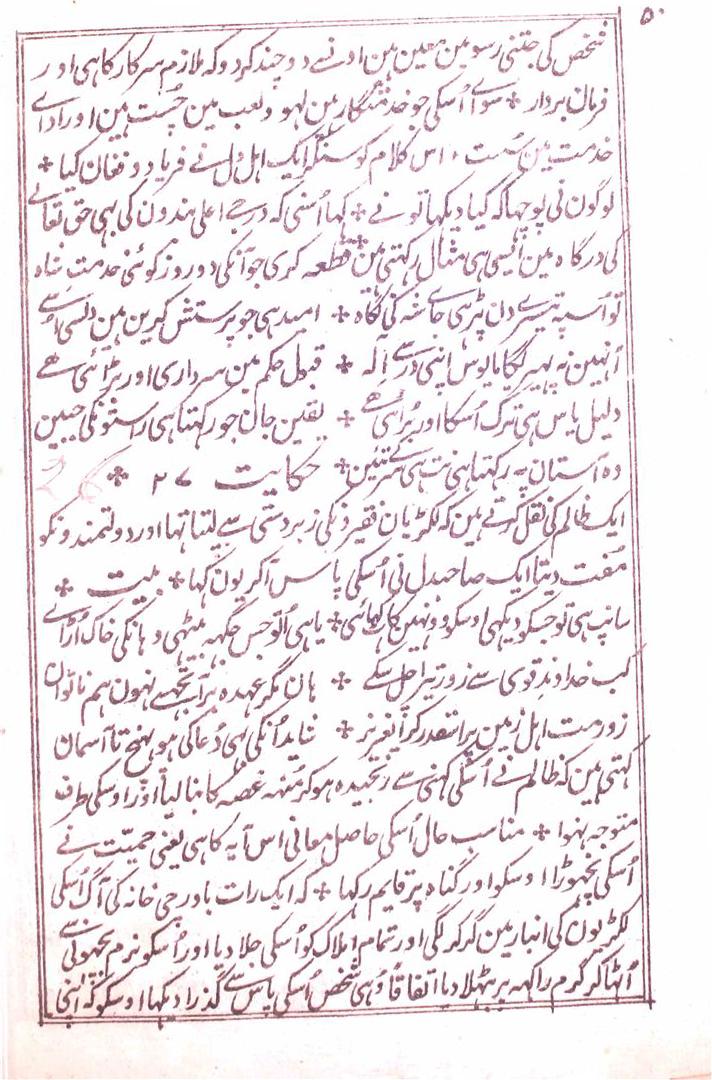 ۵۰
شخص کی جتنی رسومین معین ہین اونسے دوچند کر دو کہ ملازم سرکار کا ہی اور
فرمان بردار * سواے اُسکی جو خدمتگار ہین لہو و لعب مین چُست ہین اور اداے
خدمت مین سُست ، اس کلام کو سنکر ایک اہل دل نے فریاد و فغان کیا *
لوگون نی پوچہا کہ کیا دیکہا تو نے * کہا اُسنی کہ درجے اعلی بندون کی بہی حق تعالے
کی درگاہ مین ایسی ہی مثال رکہتی ہین * قطعہ کری جو آنکی دو روز کوئی خدمت شاہ
تو اُسپہ تیسرے دن پڑہی جاے شہ کی نگاہ * امید ہی جو پرستش کرین ہین دلسی اُسے
اُنہین نہ پہیریگا مایوس اپنی در سے الہ * قبول حکم مین سرداری اور بڑائی ہے
دلیل یاس ہی ترک اُسکا اور بُرائی ہے * یقین جان جو رکہتا ہی راستونکی جبین
وہ آستان پہ رکہتا ہی نت ہی سر کے تئین * حکایت ۲۷ *
26
ایک ظالم کی نقل کرتے ہین کہ لکڑیان فقیرونکی زبردستی سے لیتا تہا اور دولتمندونکو
مُفت دیتا ایک صاحبدل نی اُسکی پاس آکر یون کہا * بیت *
سانپ ہی تو جسکو دیکہی اوسکو وونہین کاٹ کہائی * یا ہی اُلّو جس جگہہ بیٹہی وہانکی خاک اُڑاے
کب خداوند قوی سے زور تیرا چل سکے * ہان مگر عہدہ برآ تجہسے نہون ہم ناتوان
زور مت اہل زمین پر اسقدر کر اَیعزیز * شاید اُنکی ہی دُعا کی ہو پہنچ تا آسمان
کہتی ہین کہ ظالم نے اُسکی کہنی سے رنجیدہ ہو کر مُنہہ غصہ کا بنالیا اور اوسکی طرف
متوجہ نہوا * مناسب حال اُسکی حاصل معانی اس آیہ کا ہی یعنی حمیّت نے
اُسکی نچہوڑا اوسکو اور گناہ پر قایم رکہا * کہ ایک رات باورچی خانہ کی آگ اُسکی
لکڑیون کی انبار مین گر کر لگی اور تمام املاک کو اُسکی جلا دیا اور اُسکو نرم بچہونی سے
اُٹہا کر گرم راکہہ پر بٹہلا دیا اتفاقاً وُہی شخص اُسکی پاس سے گذرا دیکہا اوسکو کہ اپنی